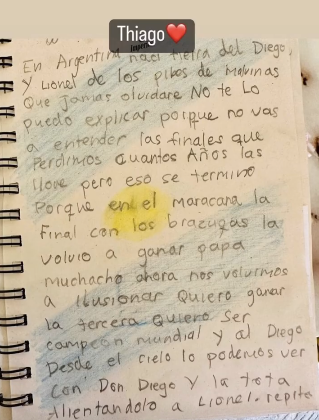 Thiago❤️
En Argentina naci tierra del Diego,
y Lionel de los pibes de malvinas
Que Jamas olvidare No te Lo
puedo explicar porque no vas
a entender las finales que
Perdimos Cuantos Años las
llore pero eso se termino
Porque en el maracana la
Final con los brazugas la
volvio a ganar papa
muchacho ahora nos volvimos
a Ilusionar Quiero ganar
la tercera Quiero Ser
campeon mundial y al Diego
Desde el cielo lo podemos ver
Con Don Diego Y la tota
Alientandolo a Lionel. repite